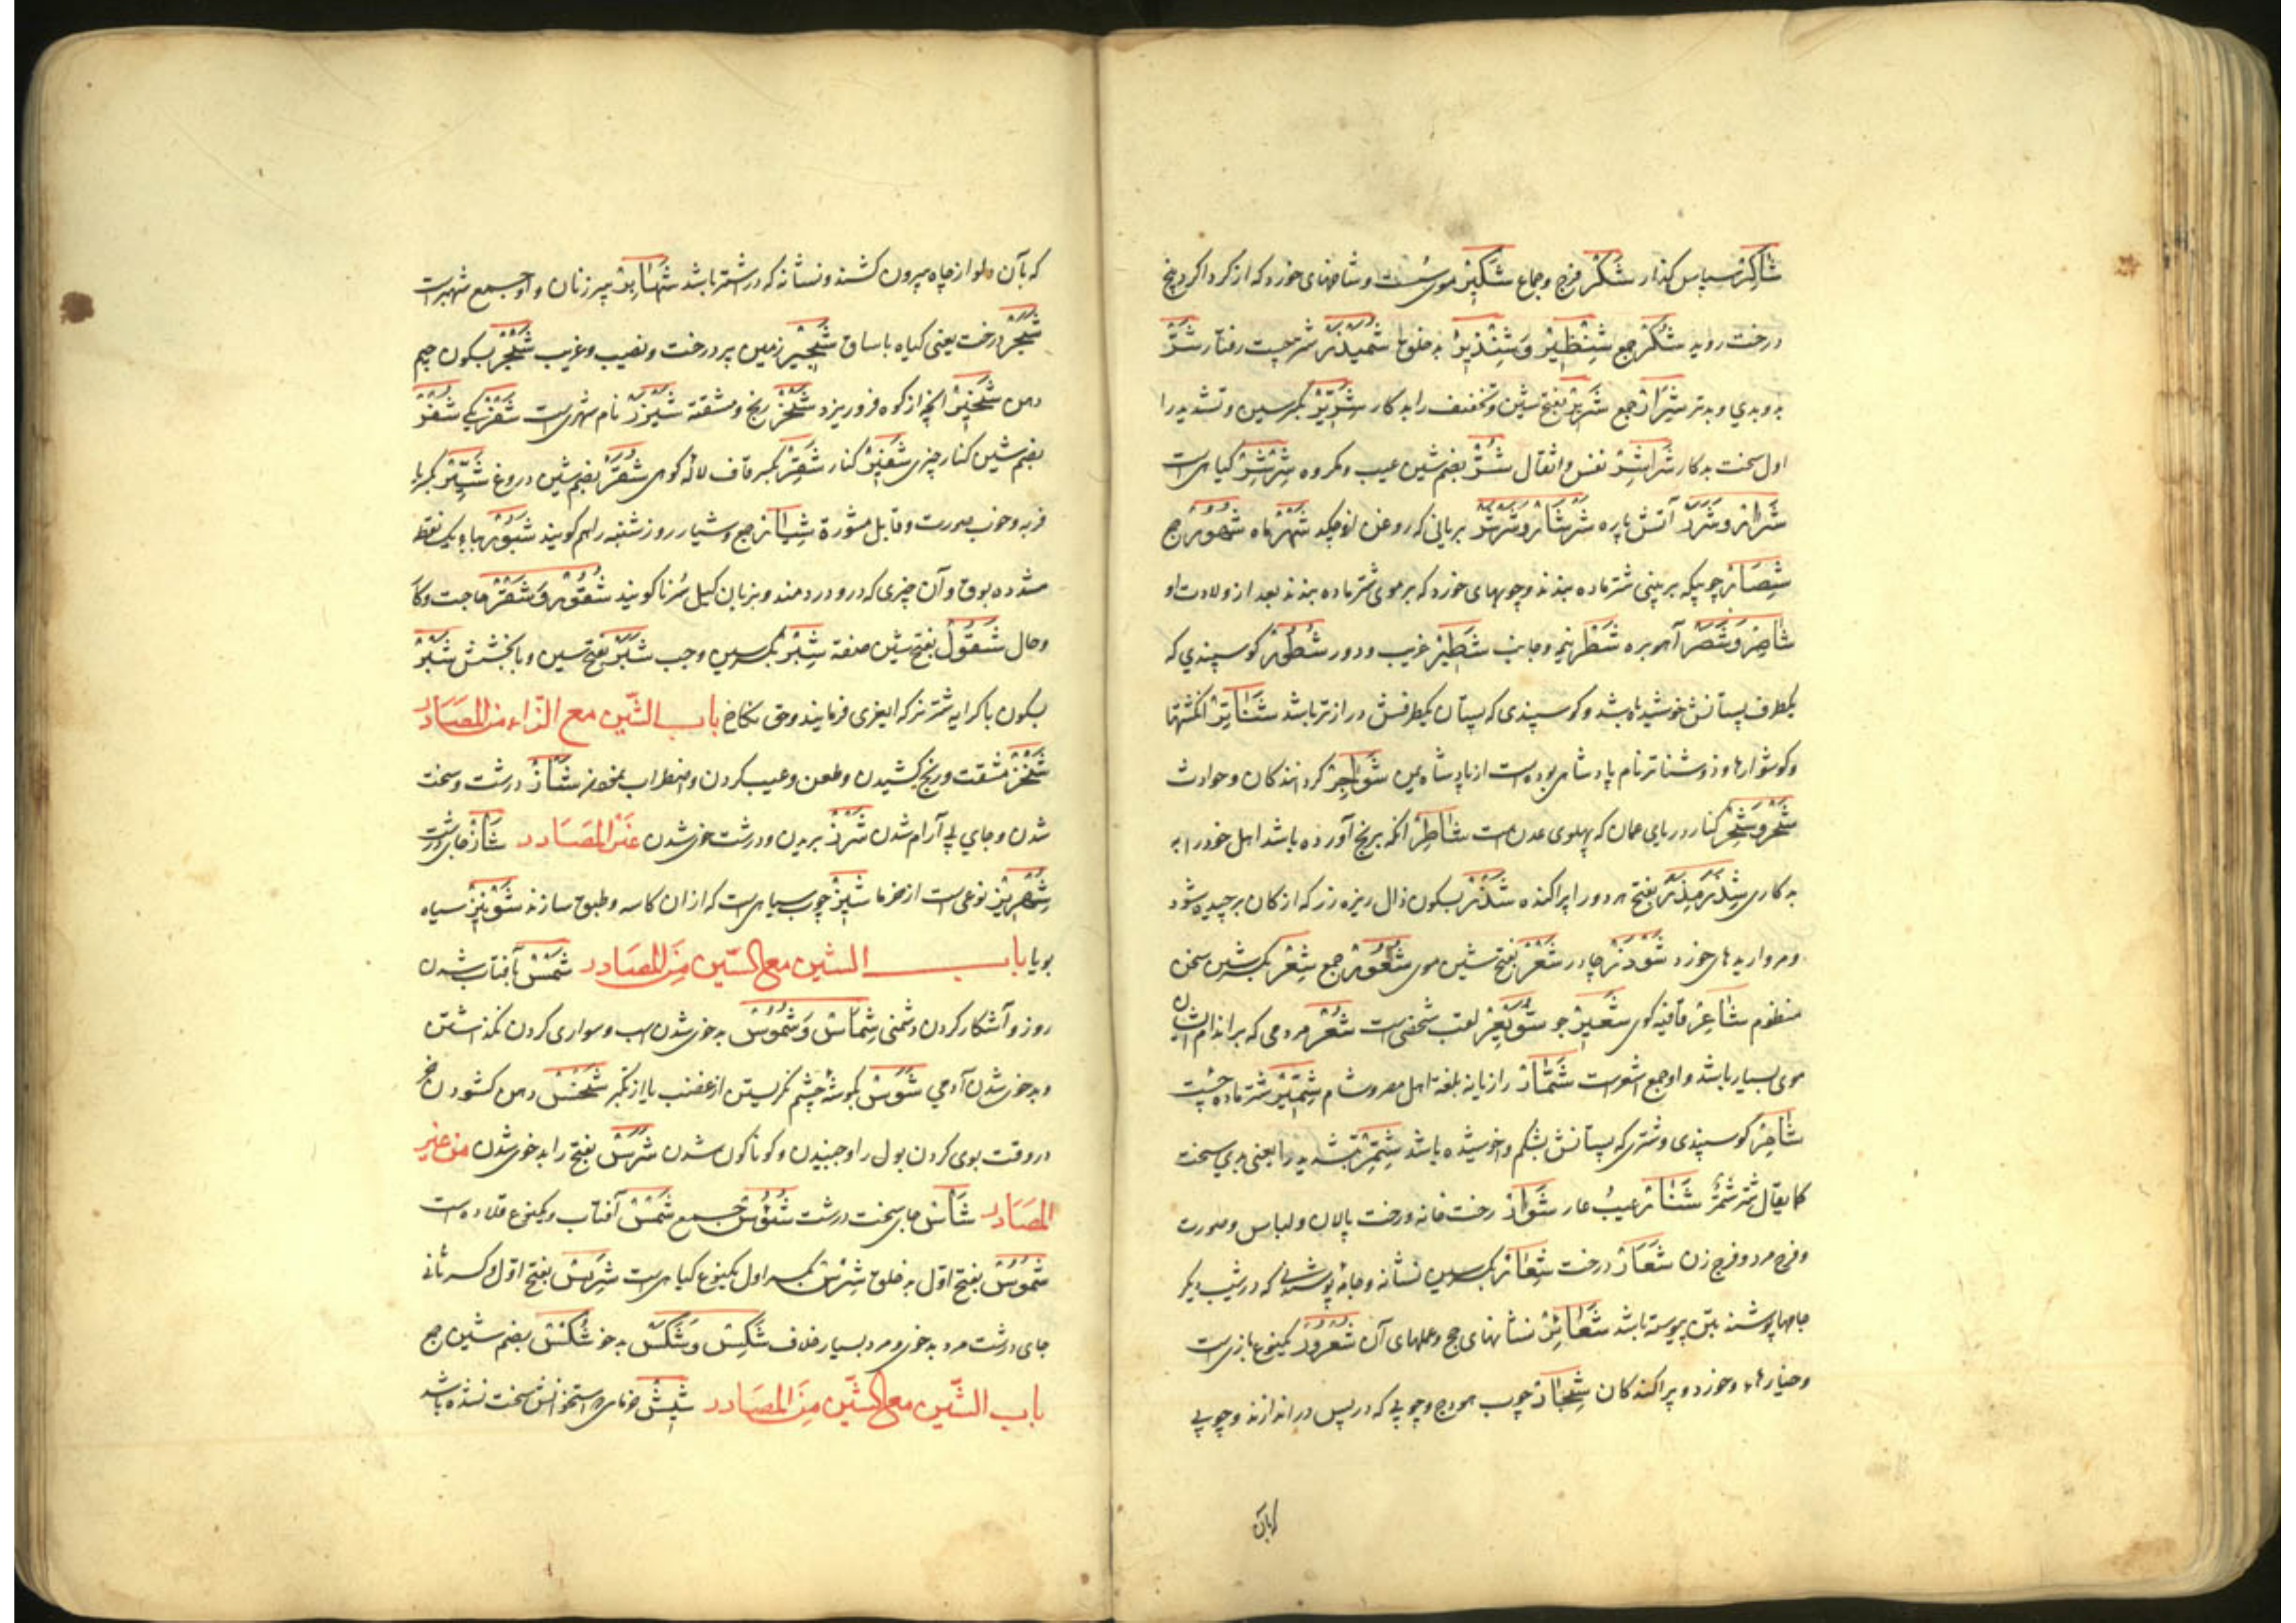 شَاکِرْ سپاس کذار شَکْرْ فرج و جماع شَکِیْرْ موی سُست و شاخهای خورد که از کرداکرد بیخ
درخت روید شُکُرْ جمع شِنْظِیْرْ وَ شِنْذِیْرْ بد خلق شَمَّیْذَرْ شتر چست رفتار شَرّْ
بد و بدی و بدتر شِرَارْ جمع شَرِیْرْ بفتح شین و تخفیف را بد کار شِرِّیْرْ بکسر سین و تشدید را
اول سخت بدکار شَرَاشِرْ نفس و اثقال شُرّْ بضم شین عیب و مکروه شِرْشِرْ کیاهی است
شَرَارْ وَ شَرَرْ آتش پاره شَرْشَارْ وَ شَرْشَرْ بریانی که روغن ازو چکد شَهْرْ ماه شُهُوْرْ جمع
شِصَارْ چوبیکه بر بینی شتر ماده بندند و چوبهای خورد که بر موی شتر ماده بندند بعد از ولادت او
شَاصِرْ وَ شَصَرْ آهو بره شَطْرْ نیم و جانب شَطِیْرْ غریب و دور شَطُوْرْ کوسپندی که
یکطرف پستانش خوشیده باشد و کوسپندی که پستان یکطرفش درازتر باشد شَنَاتِرْ انکشتها
و کوشوارها و ذو شناتر نام پادشاهی بوده است از پادشاه یمن شَوَاجِرْ کردانندکان و حوادث
شَحْرْ وَ شِحْرْ کنار دریای عمان که پهلوی عدن است شَاطِرْ انکه برنج آورده باشد اهل خود را به
بدکاری شَذَرَ مَذَرَ بفتح هر دو را پراکنده شَذْرْ بسکون ذال ریزه زر که از کان برچیده شود
و مرواریدهای خورد شَوْذَرْ چادر شَعْرْ بفتح شین موی شُعُوْرْ جمع شِعْرْ بکسر شین سخن
منظوم شَاعِرْ قافیه کوی شَعِیْرْ جو شُوَیْعِرْ لقب شخصی است شُعْرْ مردمی که بر اندام ایشان
موی بسیار باشد و او جمع اشعر است شَمَارْ رازیانه بلغة اهل مصر و شام شِمِّیْرْ شتر ماده چست
کوسپندی و شتری که پستانش بشکم و اخوشیده باشد شِمِرّْ بتشدید را یعنی بدی سخت
کما یقال شر شمر شَنَارْ عیب عار شَوَارْ رخت خانه و رخت پالان و لباس و صورت
و فرج مرد و فرج زن شَعَارْ درخت شِعَارْ بکسر سین نشانه و جامه پوششی که در شیب دیکر
جامها پوشند بتن پیوسته باشد شَعَائِرْ نشانهای حج و عملهای آن شُعْرُوْرْ یکنوع بازی است
و خیارهاء خورد و پراکندکان شِجَارْ چوب هودج و چوبی که در پس در اندازند و چوبی
که بآن
که بآن دلو از چاه بیرون کشند و نشانه که در شتر باشد شَهَابِرْ پیر زنان و او جمع شهبر است
شَجَرْ درخت یعنی کیاه با ساق شَجِیْرْ زمین پر درخت و نصیب و غریب شَجْرْ بسکون جیم
دهن شَخِیْرْ انچه از کوه فرو ریزد شَخْرْ رنج و مشقة شَیْزَرْ نام شهری است شَفْرْ یکی شُفْرْ
بضم شین کنار چیزی شَفِیْرْ کنار شَقِرْ بکسر قاف لاله کوهی شُقَرْ بضم شین دروغ شَیِّرْ بکسر یا
فربه و خوب صورت و قابل مشورة شِیَارْ جمع و شیار روز شنبه را هم کویند شَبُّوْرْ بباء یک نقطه
مشدده بوق و آن چیزی که درو دردمند و بزبان کیل سرنا کویند شُقُوْرْ وَ شَقْرْ حاجت و کار
و حال شَقُوْلْ بفتح شین صفة شِبْرْ بکسر سین وجب شَبَرْ بفتح سین و با بخشش شَبْرْ
بسکون با کرایه شتر نر که ایغری فرمایند و حق نکاح باب الشّین مع الزّاء من المصادر
شَخْزْ مشقت و رنج کشیدن و طعن و عیب کردن و اضطراب شَأَزْ درشت و سخت
شدن و جای بی آرام شدن شَرْزْ بریدن و درشت خوی شدن غیر المصادر شَأْزْ جای درشت
شِهْرِیْزْ نوعی است از خرما شِیْزْ چوب سیاهی است که از ان کاسه و طبق سازند شَوْنِیْزْ سیاه
بویا باب الشین مع السّین من المصادر شَمْسْ بآفتاب شدن
روز و آشکار کردن دشمنی شِمَاسْ وَ شُمُوْسْ بد خوی شدن اسب و سواری کردن نکذاشتن
و بد خوی شدن آدمی شَوَسْ بکوشهٔ چشم نکریستن از غضب یا از تکبر شَخْسْ دهن کشودن خر
در وقت بوی کردن بول را و جنبیدن و کوناکون شدن شَرَسْ بفتح را بد خوی شدن من غیر
المصادر شَأْسْ جای سخت درشت شُئُوْسْ جمع شَمْسْ آفتاب و یکنوع قلاده است
شَمُوْسْ بفتح اوّل بد خلق شِرْسْ بکسر اول یکنوع کیاهی است شَرِسْ بفتح اوّل و کسر ثانی
جای درشت مرد بد خوی و مرد بسیار خلاف شَکِسْ وَ شَکُسْ بد خو شُکْسْ بضم شین جمع
باب الشّین مع الشّین من المصادر شِیْشْ خرمای که استخوانش سخت نشده باشد